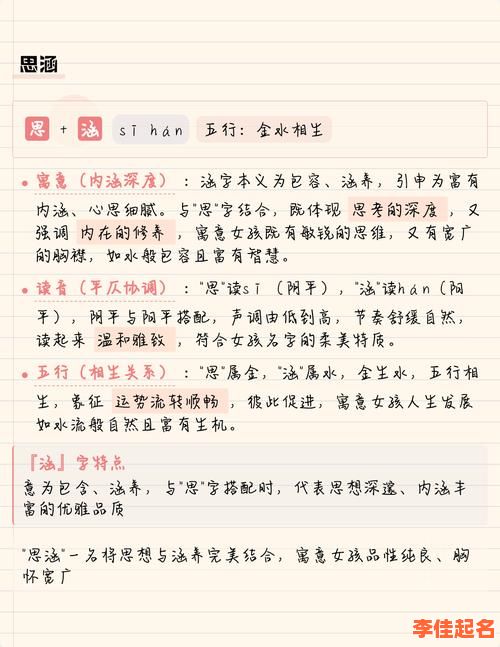 思涵
思 + 涵 sī hán 五行：金水相生
寓意（内涵深度）：涵字本义为包容、涵养，引申为富有
内涵、心思细腻。与"思"字结合，既体现 思考的深度，又
强调 内在的修养，寓意女孩既有敏锐的思维，又有宽广
的胸襟，如水般包容且富有智慧。
读音（平仄协调）："思"读sī（阴平），"涵"读hán（阳
平），阴平与阳平搭配，声调由低到高，节奏舒缓自然，
读起来 温和雅致，符合女孩名字的柔美特质。
五行（相生关系）："思"属金，"涵"属水，金生水，五行相
生，象征 运势流转顺畅，彼此促进，寓意女孩人生发展
如水流般自然且富有生机。
『涵』字特点
意为包含、涵养，与"思"字搭配时，代表思想深邃、内涵丰
富的优雅品质
"思涵"一名将思想与涵养完美结合，寓意女孩品性纯良、胸
怀宽广
李佳起名